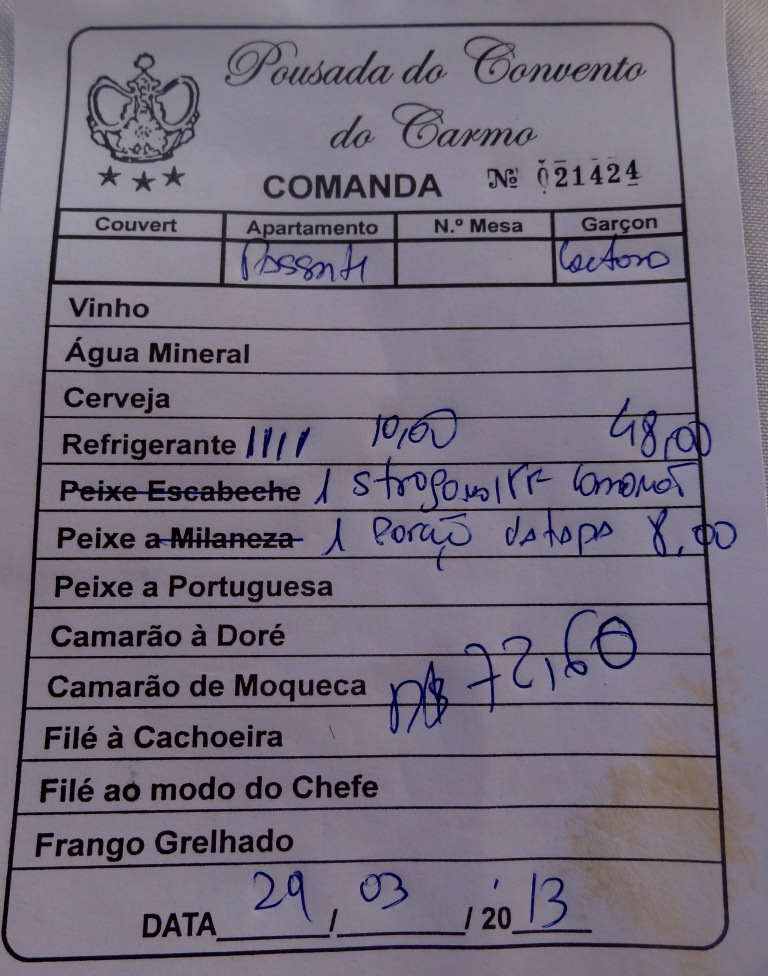 Pousada do Convento
do Carmo
COMANDA Nº 021424
Couvert Apartamento N.º Mesa Garçon
Vinho
Água Mineral
Cerveja
Refrigerante IIII 10,00 48,00
Peixe Escabeche 1
Peixe a Milaneza 1 Porção 8,00
Peixe a Portuguesa
Camarão à Doré
Camarão de Moqueca R$ 72,60
Filé à Cachoeira
Filé ao modo do Chefe
Frango Grelhado
DATA 29 / 03 / 20 13